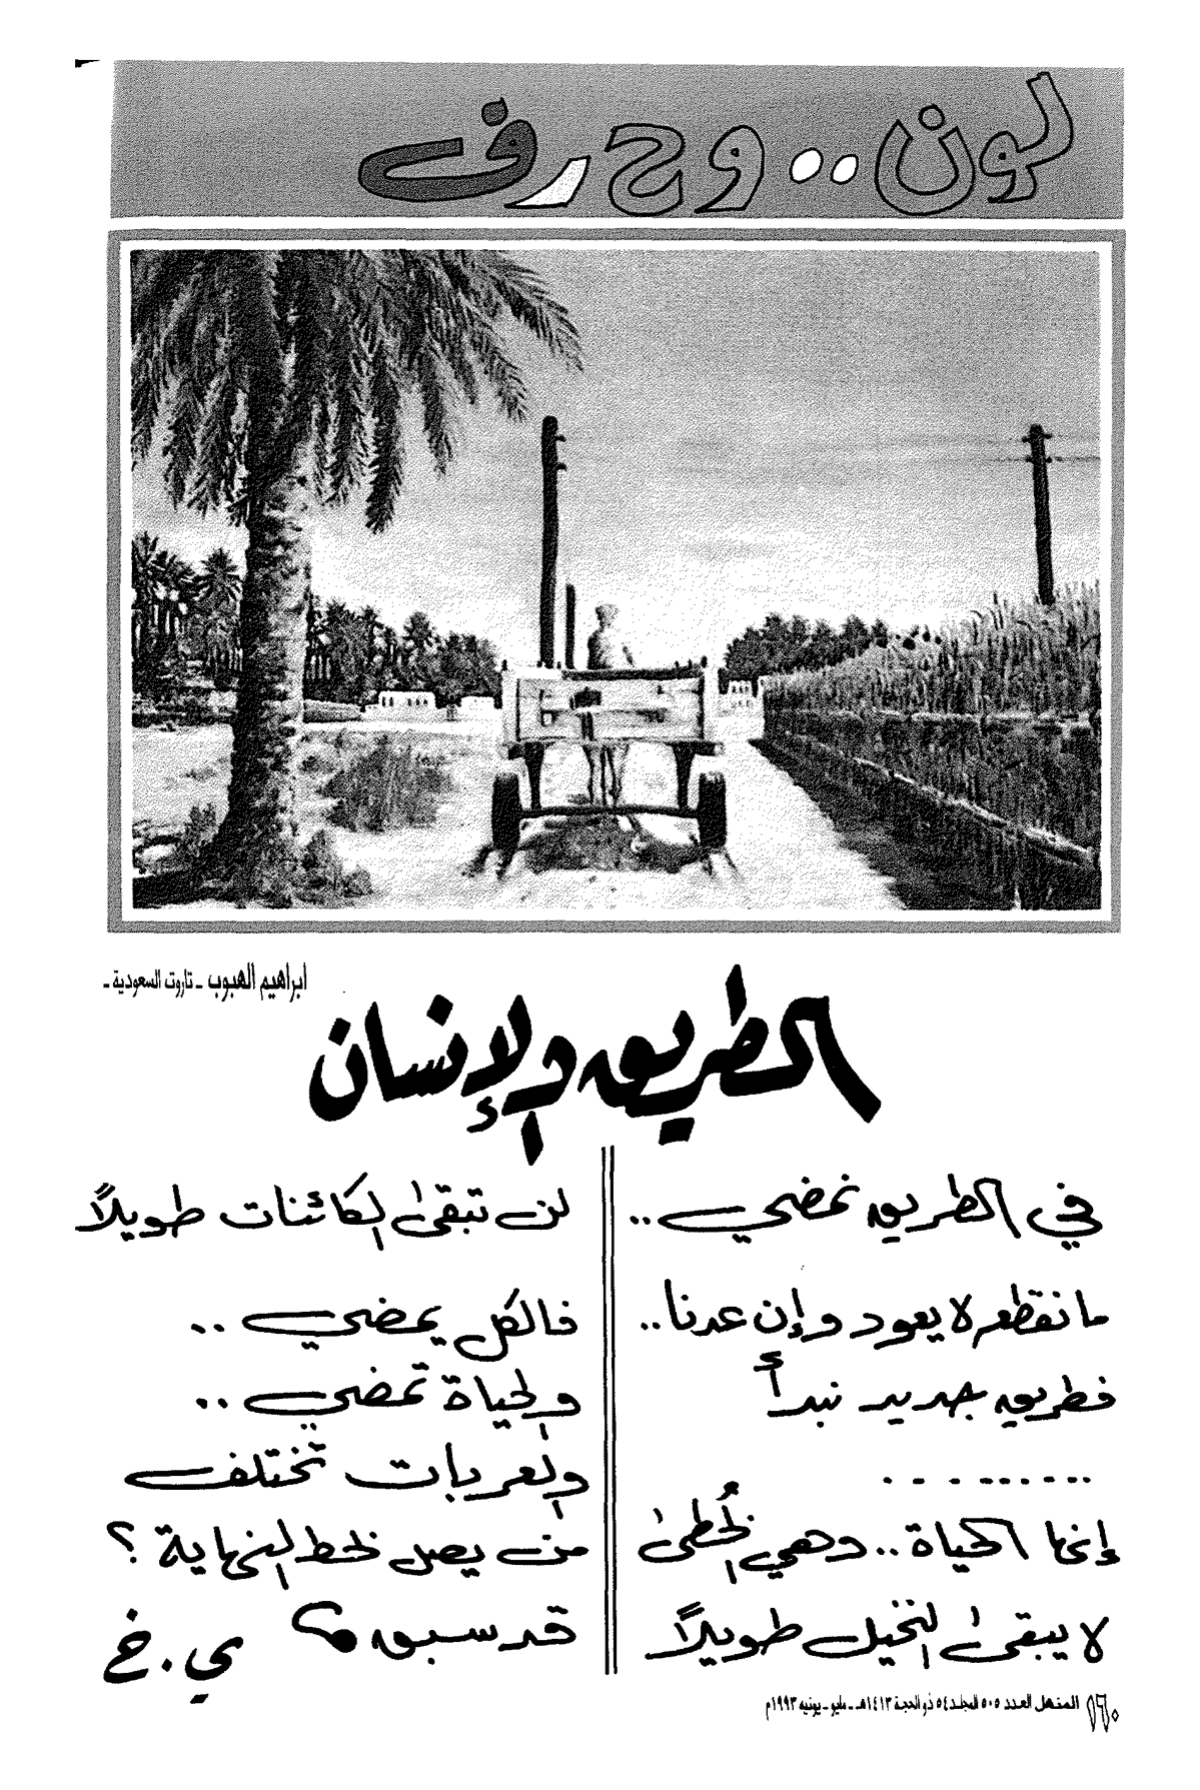 لون .. وحرف
ابراهيم الهبوب ـ تاروت السعودية ـ
الطريق والإنسان
في الطريق نمضي ..
ما نقطعه لا يعود وإن عدنا ..
فطريق جديد نبدأ
..........
إنها الحياة .. وهي الخُطى
لا يبقى النخيل طويلاً
لن تبقى الكائنات طويلاً
فالكل يمضي ..
والحياة تمضي ..
والعربات تختلف
من يصل لخط النهاية ؟
قد سبق
ي . خ
٥٦٠ المنهل العدد ٥٠٥ المجلد ٥٤ ذو الحجة ١٤١٣هـ ـ مايو ـ يونيه ١٩٩٣م